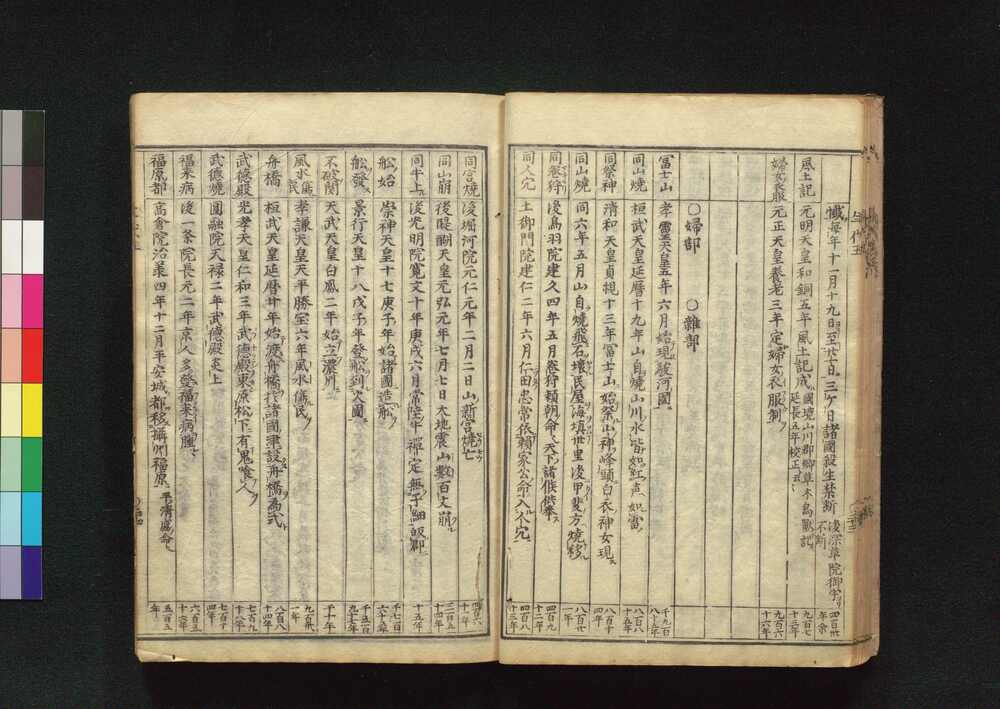 懺 毎年十一月十九日ヨリ至廿一日三ケ日諸國殺生禁断
後深草院御宇ヨリ不断
四百廿年余
風土記 元明天皇和銅五年風土記成
國境山川郡郷草木鳥獸記
延長五年校正ス
九百七十三年
婦女衣服 元正天皇養老三年定婦女衣服制
九百六十六年
○婦部 ○雜部
冨士山 孝靈天皇五年六月始現駿河國
千九百八十五年
同山燒 桓武天皇延暦十九年山自燒山川水皆如紅声如雷
八百八十五年
同祭神 清和天皇貞観十三年冨士山始祭山神峰頭白衣神女現
八百十四年
同山燒 同六年五月山自燒飛石壊民屋海填廿里後甲斐方燒移
八百廿一年
同卷狩 後鳥羽院建久四年五月卷狩頼朝命天下諸侯供奉
四百九十二年
同人穴 土御門院建仁二年六月仁田忠常依頼家公命入人穴
四百八十三年
同宮燒 後堀河院元仁元年二月二日山新宮燒亡
四百六十一年
同山崩 後醍醐天皇元弘元年七月七日大地震山数百丈崩
三百五十四年
同牛上 後光明院寛文十年庚戌六月常陸牛禪定無子細皈郷
十五年
舩始 崇神天皇十七庚子年始諸國造舩
千七百六十余
舩發 景行天皇十八戊子年登舩到火國
千五百九十七年
不破関 天武天皇白鳳二年始立濃州
千十年
風水儛民 孝謙天皇天平勝宝六年風水儛民
九百卅一年
舟橋 桓武天皇延暦廿年始渡舟橋於諸國兼設舟橋爲式
八百八十四年
武德殿 光孝天皇仁和三年武德殿東原松下有鬼喰人
七百九十八年
武德燒 圓融院天禄二年武德殿炎上
七百十四年
福来病 後一条院長元二年京人多發福来病腫
六百五十六年
福原都 高倉院治承四年十二月平安城都移攝州福原
平清盛命
五百五年